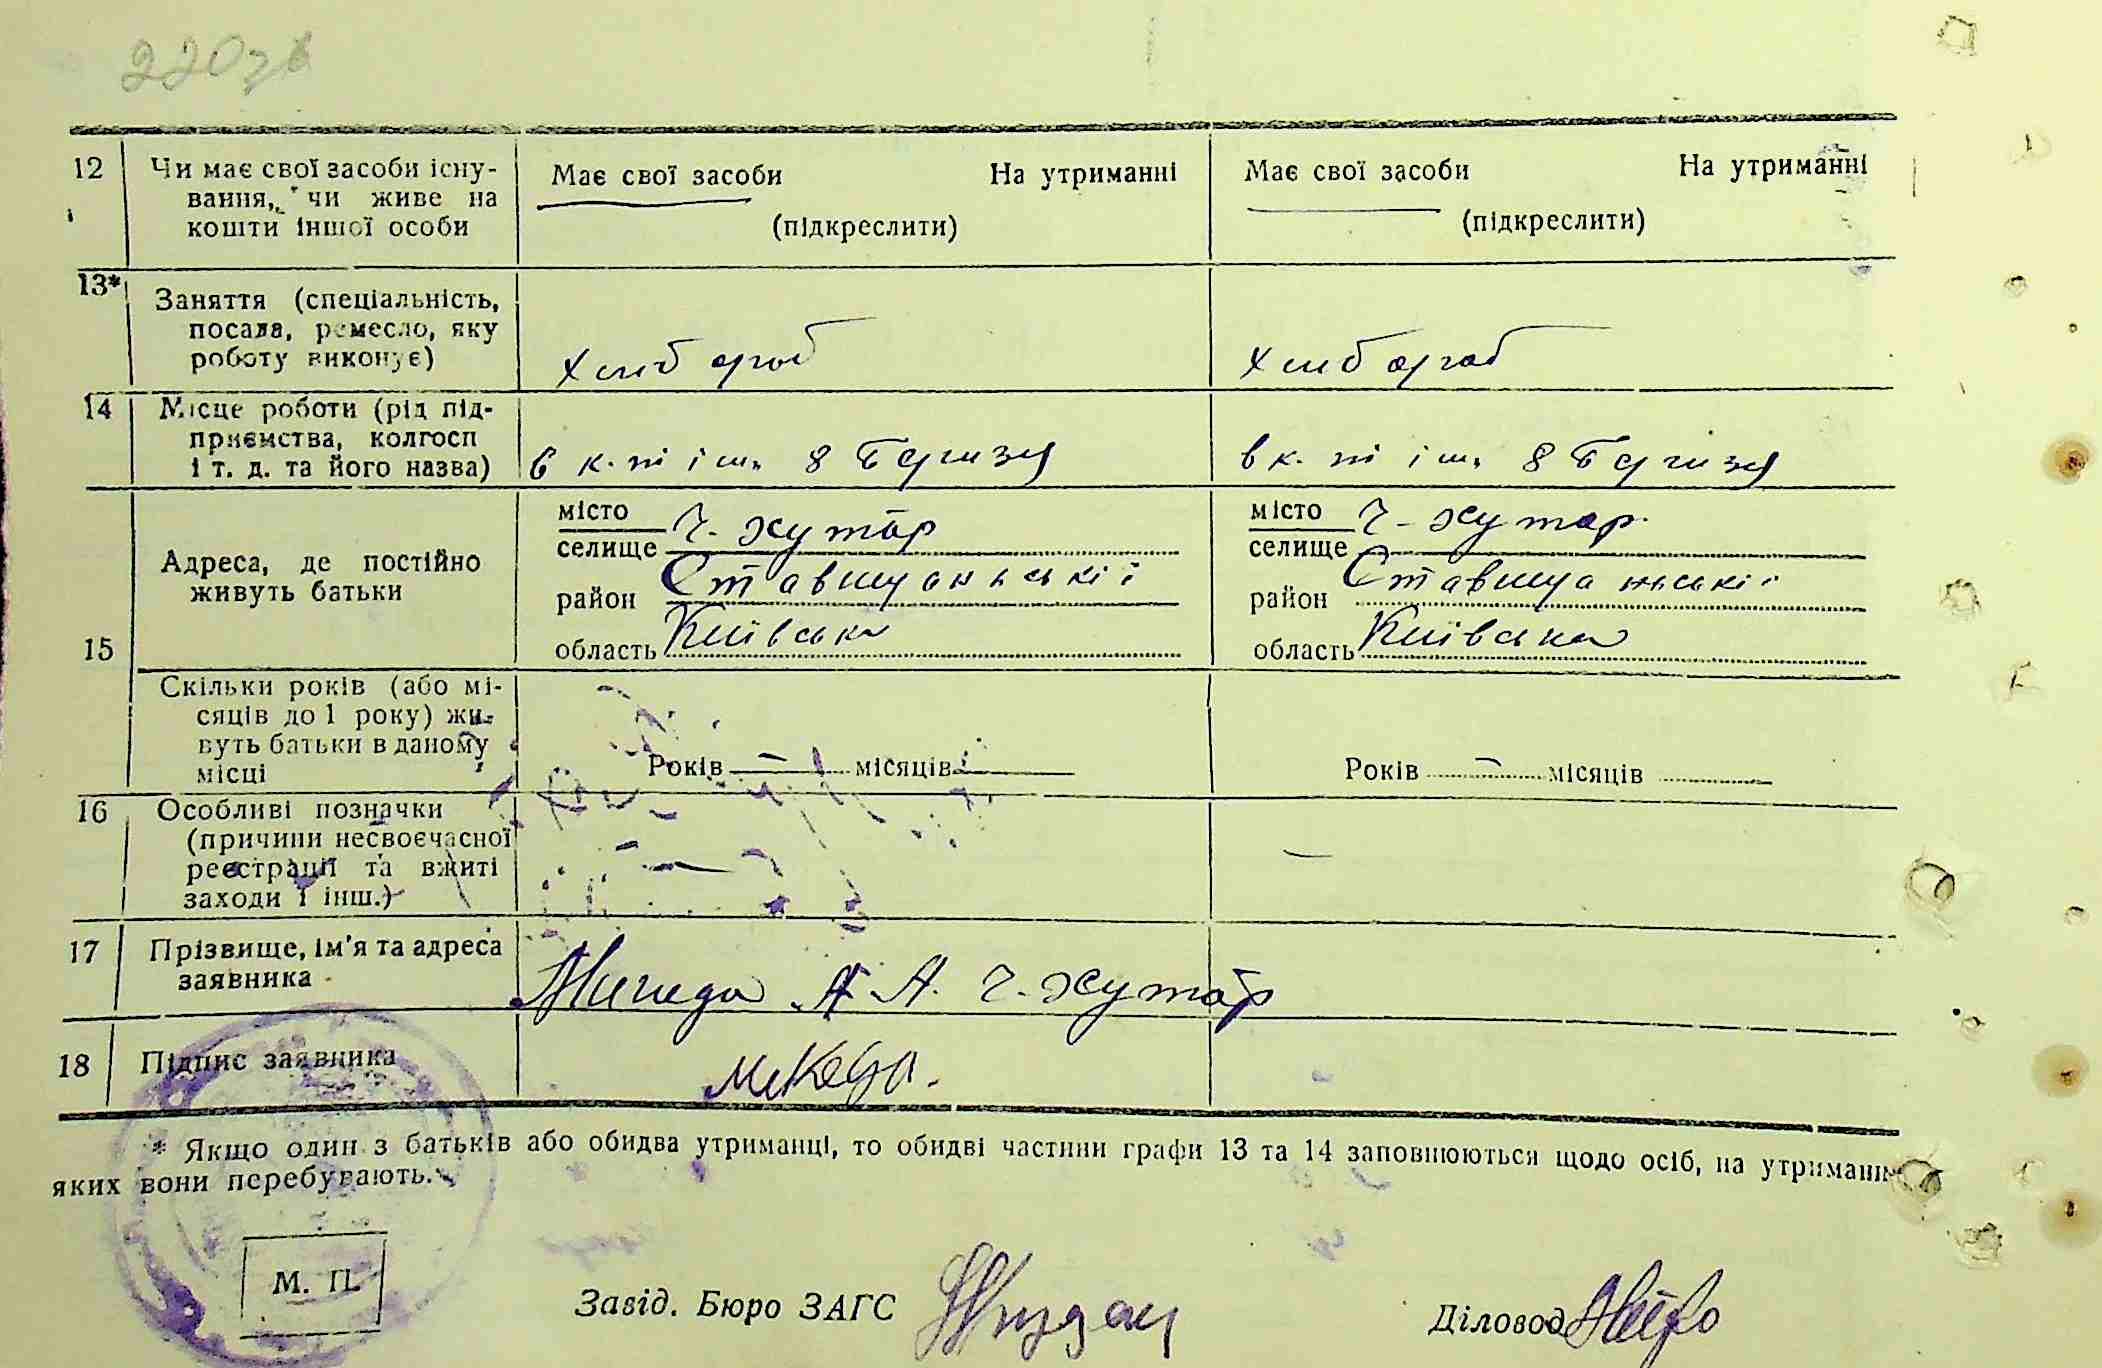 220зв
12 Чи має свої засоби існу- Має свої засоби На утриманні Має свої засоби На утриманні
вання, чи живе на
кошти іншої особи (підкреслити) (підкреслити)
13* Заняття (спеціальність,
посада, ремесло, яку
роботу виконує) Хлібороб Хлібороб
14 Місце роботи (рід під-
приємства, колгосп
і т. д. та його назва) в к-ті ім. 8 Березня в к-ті ім. 8 Березня
місто Ч-хутор місто Ч-хутор
селище селище
Адреса, де постійно
живуть батьки район Ставищанській район Ставищанській
15 область Київська область Київська
Скільки років (або мі-
сяців до 1 року) жи-
вуть батьки в даному Років — місяців Років — місяців
місці
16 Особливі позначки
(причини несвоєчасної
реєстрації та вжиті — —
заходи і інш.)
17 Прізвище, ім'я та адреса
заявника А. А. Ч-хутор
18 Підпис заявника
* Якщо один з батьків або обидва утриманці, то обидві частини графи 13 та 14 заповнюються щодо осіб, на утриманні
яких вони перебувають.
М. П.
Завід. Бюро ЗАГС Діловод